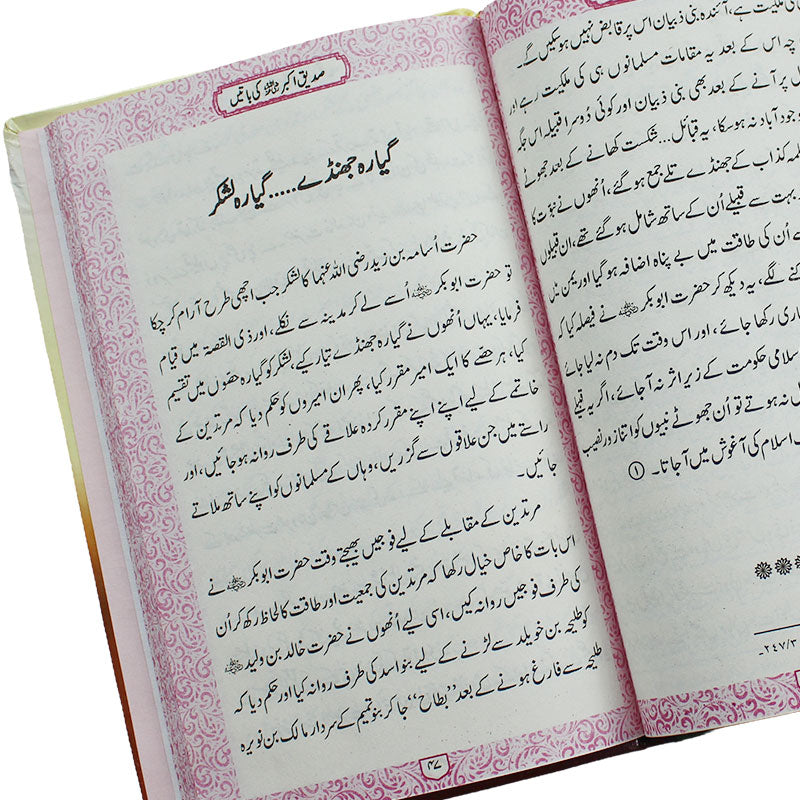 ملکیت ہے، آئندہ بنی ذبیان اس پر قابض نہیں ہوسکیں گے۔
چہ اس کے بعد یہ مقامات مسلمانوں ہی کی ملکیت رہے اور
پر آنے کے بعد بھی بنی ذبیان اور کوئی دُوسرا قبیلہ اس جگہ
آباد نہ ہوسکا، یہ قبائل... شکست کھانے کے بعد جھوٹے
کذاب کے جھنڈے تلے جمع ہوگئے، اُنھوں نے نبوّت کا
بہت سے قبیلے اُن کے ساتھ شامل ہوگئے تھے، ان قبیلوں
سے اُن کی طاقت میں بے پناہ اضافہ ہوگیا اور یمن میں
لگے، یہ دیکھ کر حضرت ابوبکر ؓ نے فیصلہ کیا کہ
رکھا جائے، اور اس وقت تک دم نہ لیا جائے
سلامی حکومت کے زیر اثر نہ آجائے، اگر یہ قبیلے
نہ ہوتے تو اُن جھوٹے نبیوں کو اتنا زور نصیب
اسلام کی آغوش میں آجاتا۔ ①
۲۴۷/۳۔
صدیق اکبر ؓ کی باتیں
گیارہ جھنڈے.....گیارہ لشکر
حضرت اُسامہ بن زید رضی اللہ عنہما کا لشکر جب اچھی طرح آرام کر چکا
تو حضرت ابوبکر ؓ اُسے لے کر مدینہ سے نکلے، اور ذی القصۃ میں قیام
فرمایا، یہاں اُنھوں نے گیارہ جھنڈے تیار کیے، لشکر کو گیارہ حصّوں میں تقسیم
کیا، ہر حصّے کا ایک امیر مقرر کیا، پھر ان امیروں کو حکم دیا کہ مرتدین کے
خاتمے کے لیے اپنے اپنے مقرر کردہ علاقے کی طرف روانہ ہوجائیں، اور
راستے میں جن علاقوں سے گزریں، وہاں کے مسلمانوں کو اپنے ساتھ ملاتے
جائیں۔
مرتدین کے مقابلے کے لیے فوجیں بھیجتے وقت حضرت ابوبکر ؓ نے
اس بات کا خاص خیال رکھا کہ مرتدین کی جمعیت اور طاقت کا لحاظ رکھ کر اُن
کی طرف فوجیں روانہ کیں، اسی لیے اُنھوں نے حضرت خالد بن ولید ؓ
کو طلیحہ بن خویلد سے لڑنے کے لیے بنو اسد کی طرف روانہ کیا اور حکم دیا کہ
طلیحہ سے فارغ ہونے کے بعد ”بطاح“ جا کر بنو تمیم کے سردار مالک بن نویرہ
۴۷